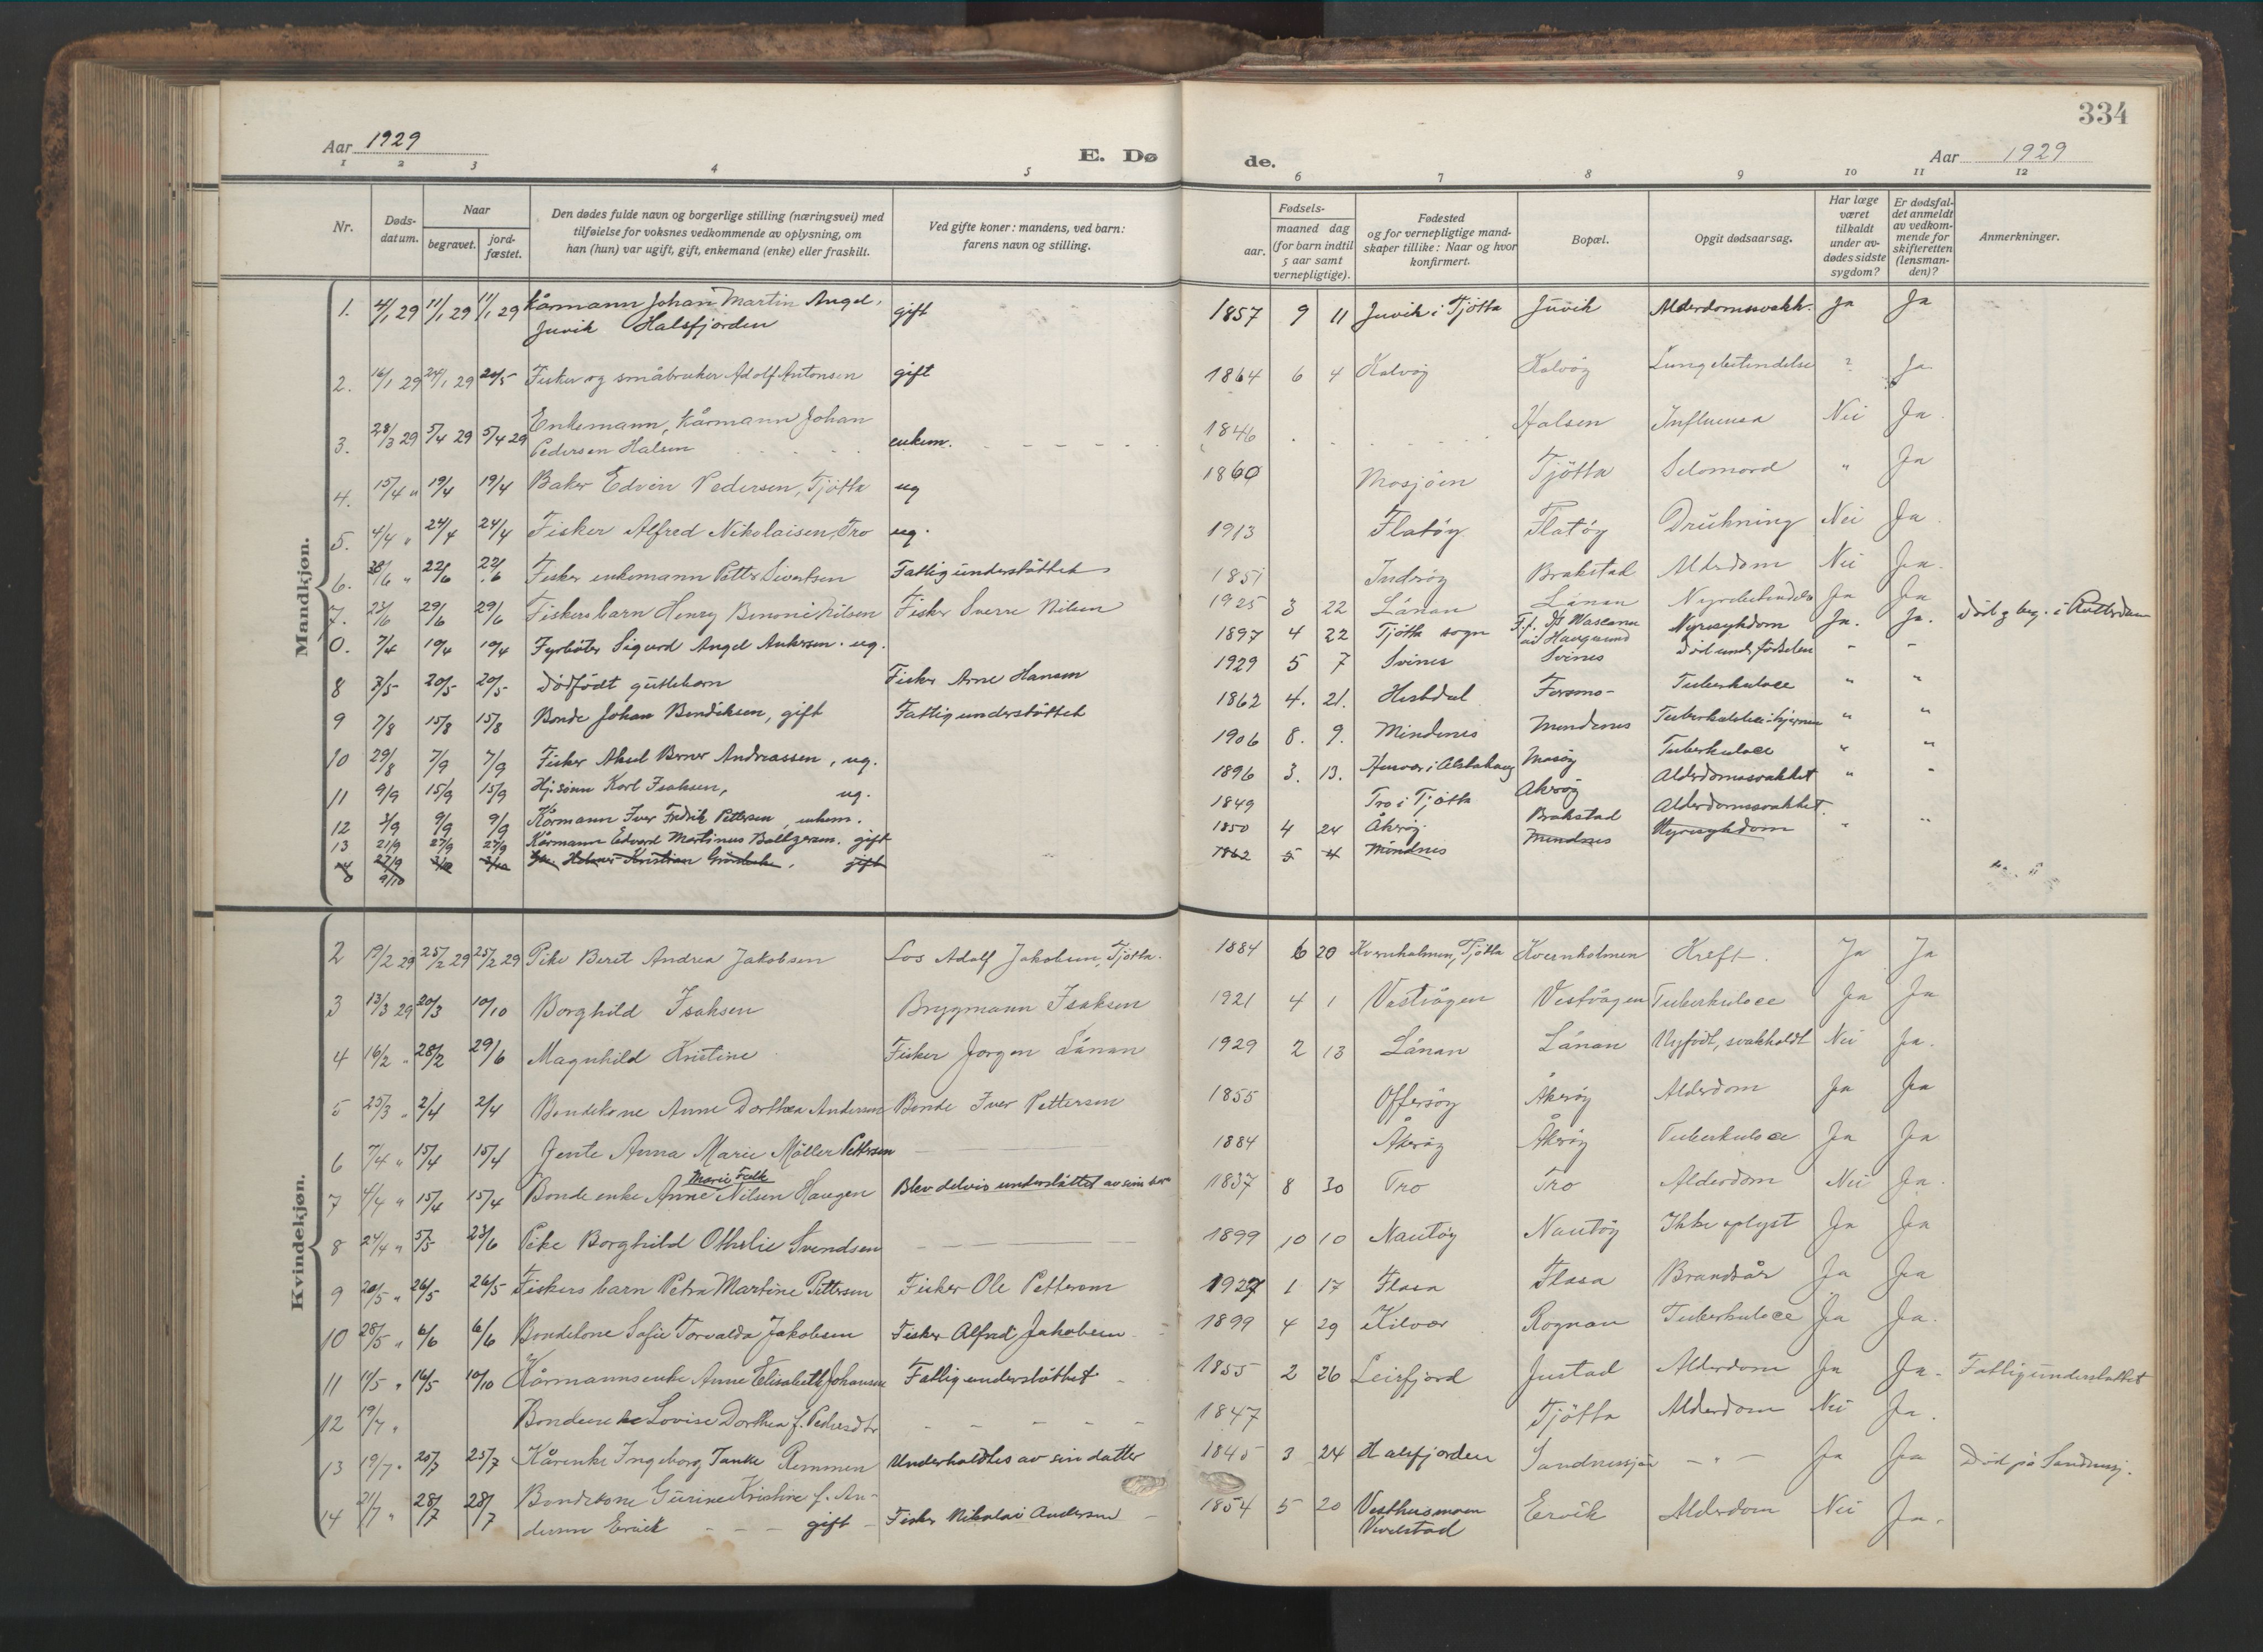 334
Aar 1929
E. Dø
de.
Aar 1929
1 2 3 4 5 6 7 8 9 10 11 12
Nr.
Døds-
datum.
Naar
begravet.
jord-
fæstet.
Den dødes fulde navn og borgerlige stilling (næringsvei) med
tilføielse for voksnes vedkommende av oplysning, om
han (hun) var ugift, gift, enkemand (enke) eller fraskilt.
Ved gifte koner: mandens, ved barn:
farens navn og stilling.
Fødsels-
aar.
maaned dag
(for barn indtil
5 aar samt
vernepligtige).
Fødested
og for vernepligtige mand-
skaper tillike: Naar og hvor
konfirmert.
Bopæl.
Opgit dødsaarsag.
Har læge
været
tilkaldt
under av-
dødes sidste
sygdom?
Er dødsfal-
det anmeldt
av vedkom-
mende for
skifteretten
(lensman-
den)?
Anmerkninger.
Mandkjøn.
1. 4/1 29 11/1 29 11/1 29 Kårmann Johan Martin Angel. gift 1857 9 11 Juvik i Tjötta Juvik Alderdomssvakk. Ja Ja
Juvik Halsfjorden
2. 16/1 29 24/1 29 20/5 Fisker og småbruker Adolf Antonsen gift 1864 6 4 Kalvöy Kalvöy Lungebetendelse ? Ja
3. 28/3 29 5/4 29 5/4 29 Enkemann, Kårmann Johan enkem. 1846 Halsen Influensa Nei Ja
Pedersen Halsen
4. 15/4 " 19/4 19/4 Baker Edvin Pedersen, Tjötta ug 1860 Mosjöen Tjötta Selvmord " Ja
5. 4/4 " 24/4 24/4 Fisker Alfred Nikolaisen, Tro ug. 1913 Flatöy Flatöy Drukning Nei Ja
6. /6 " 22/6 22/6 Fisker enkemann Petter Sivertsen Fattigunderstöttet 1851 Indröy Brakstad Alderdom Nei Ja.
7. 23/6 29/6 29/6 Fiskers barn Henry Benoni Nilsen Fisker Sverre Nilsen 1925 3 22 Lånan Lånan Ja Ja
0. 7/4 10/4 10/4 Fyrböter Sigurd Angel Ankersen. ug. 1897 4 22 Tjötta sogn Nyresykdom Ja. Ja. Död og beg. i Rotterdam
8 7/5 20/5 20/5 Dödfödt guttebarn Fisker Arne Hansen 1929 5 7 Svines Svines Död under födselen - -
9 7/8 15/8 15/8 Bonde Johan Bendiksen, gift Fattigunderstöttet 1862 4. 21. Hestdal Forsmo- Tuberkulose " "
10 29/8 7/9 7/9 Fisker Aksel Berner Andreassen, ug. 1906 8. 9. Mindenes Mindenes Tuberkulose i hjernen " "
11 9/9 15/9 15/9 Hj.sönn Karl Isaksen, ug. 1896 3. 13. i Alstahaug Måsöy Tuberkulose " "
12 3/9 9/9 9/9 Kårmann Iver Fredrik Pettersen, enkem. 1849 Tro i Tjötta Åkeröy Alderdomssvakhet " "
13 21/9 27/9 27/9 Kårmann Edvard Martinus Baltzersen. gift 1850 4 24 Åkeröy. Brakstad Alderdomssvakhet. " "
27/9 9/10 Kristian gift 1862 5 4 Mindnes Mindnes Nyresykdom
Kvindekjøn.
2 19/2 29 25/2 29 25/2 29 Pike Beret Andrea Jakobsen Los Adolf Jakobsen, Tjötta. 1884 6 20 Kvernholmen, Tjötta Kvernholmen Kreft. Ja Ja
3 13/3 29 20/3 10/10 Borghild Isaksen Bryggmann Isaksen 1921 4 1 Vestvågen Vestvågen Tuberkulose Ja Ja
4 16/2 " 28/2 29/6 Magnhild Kristine Fisker Jörgen Lånan 1929 2 13 Lånan Lånan Nyfödt, svakholdt Nei Ja.
5 25/3 " 2/4 2/4 Bondekone Anne Dorthea Andersen Bonde Iver Pettersen 1855 Offersöy Åkeröy Alderdom Ja Ja
6 7/4 " 15/4 15/4 Jente Anna Marie Möller Pettersen 1884 Åkeröy Åkeröy Tuberkulose Ja Ja
Marie Falk
7 4/4 " 15/4 15/4 Bonde enke Anne Nilsen Haugen Blev delvis understöttet av sin sön 1837 8 30 Tro Tro Alderdom Nei Ja.
8 24/4 " 5/5 23/6 Pike Borghild Othelie Svendsen 1899 10 10 Nautöy Nautöy Ikke oplyst Ja Ja
9 20/5 " 26/5 26/5 Fiskers barn Petra Martine Pettersen Fisker Ole Pettersen 1927 1 17 Flasa Flasa Brandsår Ja Ja
10 28/5 " 6/6 6/6 Bondekone Sofie Torvalda Jakobsen Fisker Alfred Jakobsen 1899 4 29 Kilvær Rognan Tuberkulose Ja Ja.
11 11/5 " 16/5 10/10 Kårmannsenke Anne Elisabeth Johansen Fattigunderstöttet 1855 2 26 Leirfjord Justad Alderdom Ja Ja- Fattigunderstöttet
12 19/7 " Bondeenke Lovise Dorthea f. Pedersdtr 1847 Tjötta Alderdom Nei Ja.
13 19/7 " 25/7 25/7 Kårenke Ingeborg Tanke Remmen Underholdtes av sin datter 1845 3 24 Halsfjorden Sandnessjöen - " - Ja Ja Död på Sandnessj.
14 21/7 " 28/7 28/7 Bondekone Gurine Kristine f. An- Fisker Nikolai Andersen 1854 5 20 Vesthusmoen Ervik Alderdom Nei Ja.
dersen Ervik gift Vevelstad